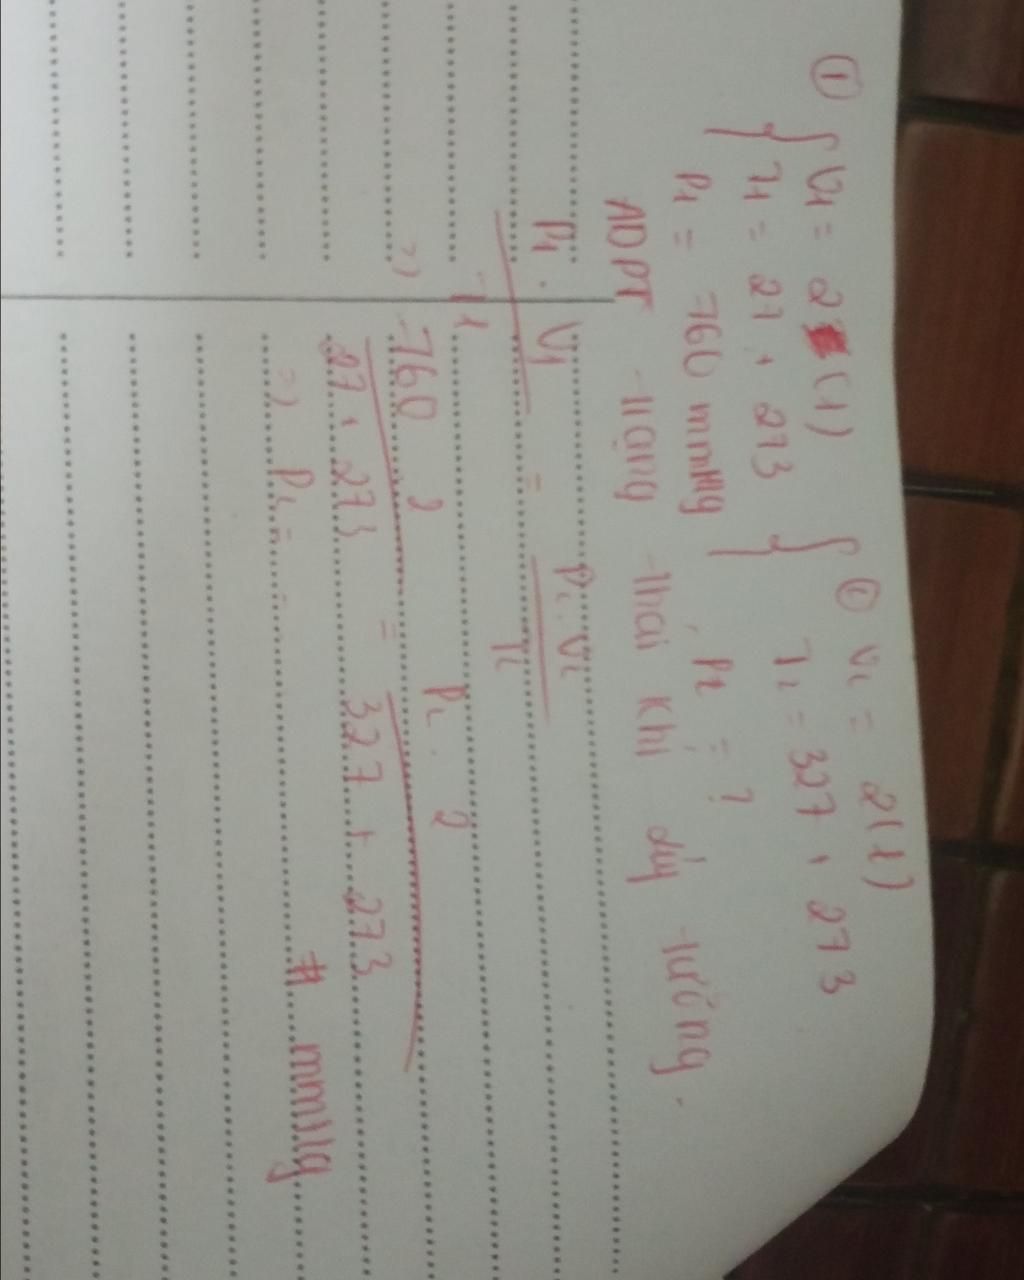 ① { V1 = 2 (l)
T1 = 27 + 273
P1 = 760 mmHg
② { V2 = 2 (l)
T2 = 327 + 273
P2 = ?
ADPT Trạng Thái Khí lý tưởng.
P1 . V1 / T1 = P2 . V2 / T2
=> 760 . 2 / 27 + 273 = P2 . 2 / 327 + 273
=> P2 = mmHg